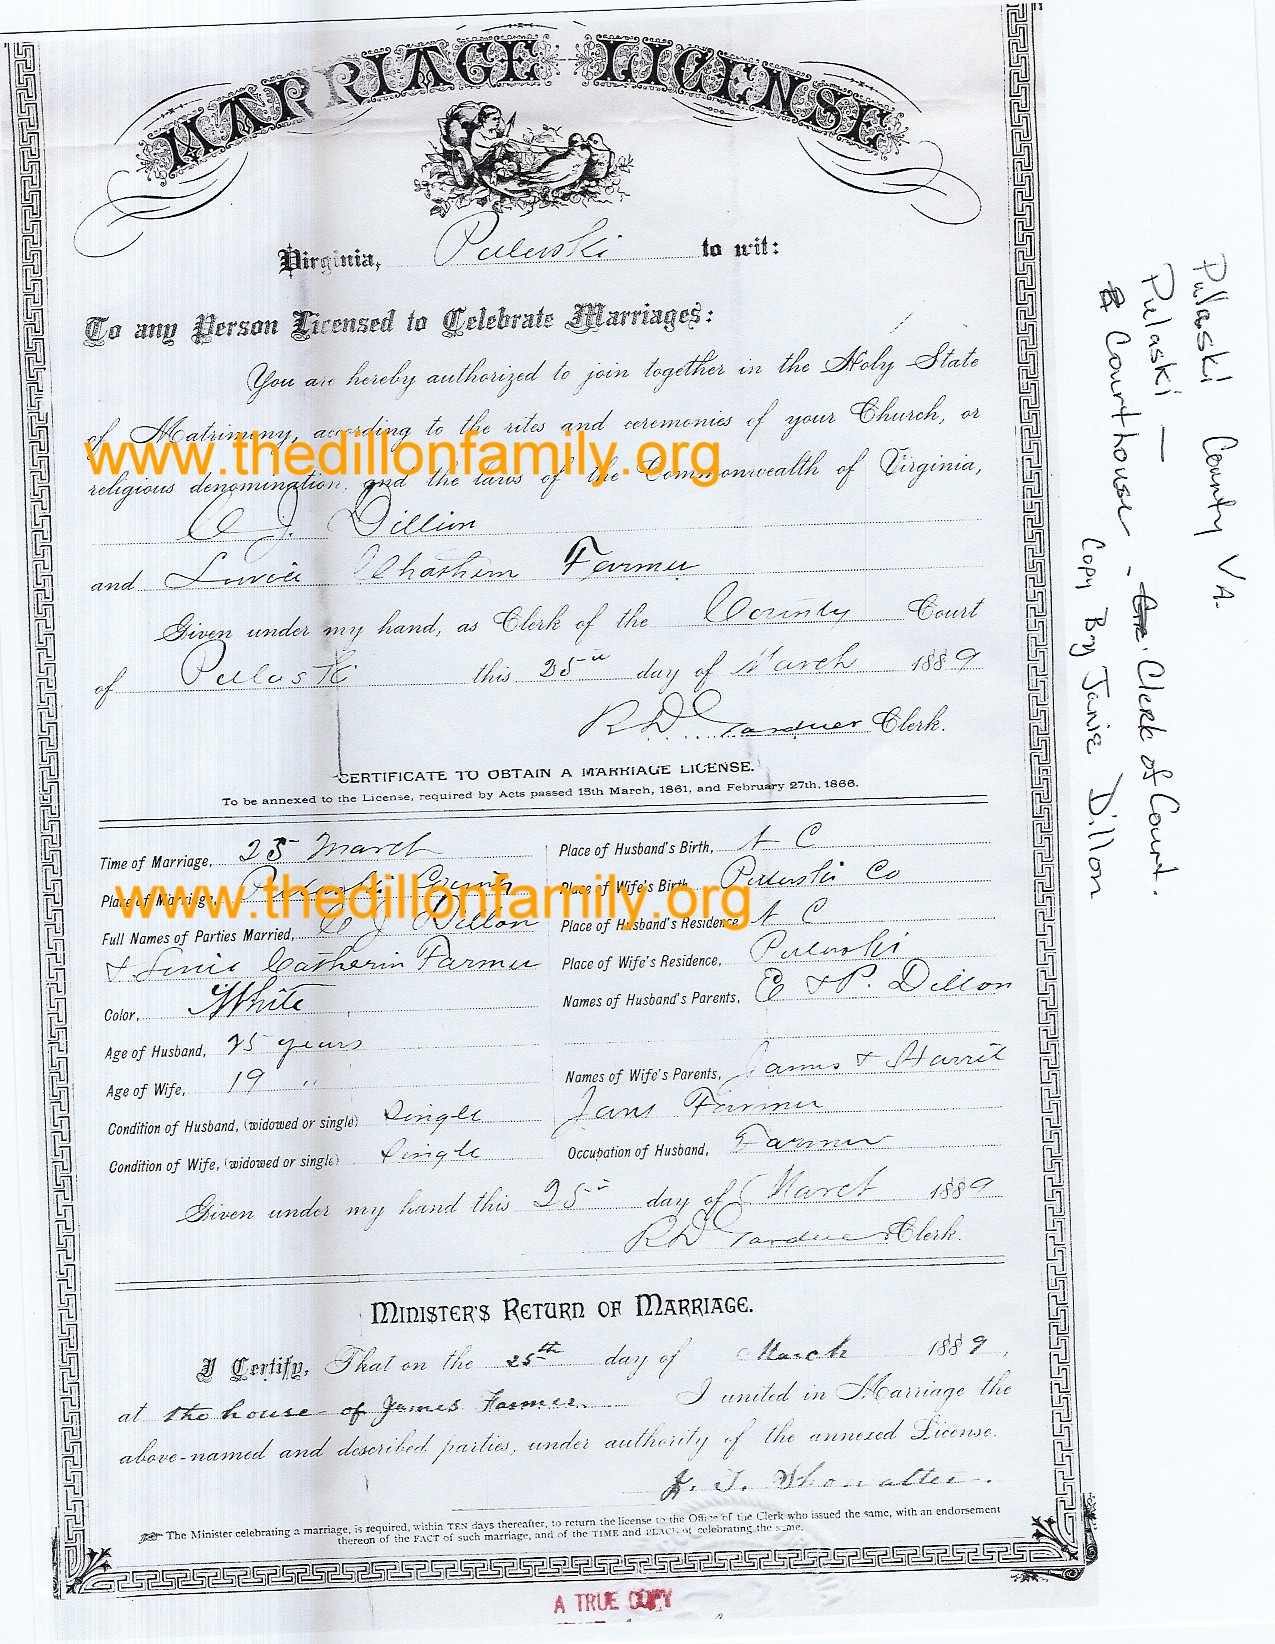 MARRIAGE LICENSE
Virginia, Pulaski to wit:
To any Person Licensed to Celebrate Marriages:
You are hereby authorized to join together in the Holy State
of Matrimony, according to the rites and ceremonies of your Church, or
www.thedillonfamily.org
religious denomination, and the laws of the Commonwealth of Virginia,
C J. Dillion
and Lurie Chathern Farmer
Given under my hand, as Clerk of the County Court
of Pulaski this 25th day of March 1889
R D Gardner Clerk.
CERTIFICATE TO OBTAIN A MARRIAGE LICENSE.
To be annexed to the License, required by Acts passed 15th March, 1861, and February 27th, 1866.
Time of Marriage, 25 March
Place of Marriage, Pulaski County
www.thedillonfamily.org
Full Names of Parties Married, C J Dillon
& Catherin Farmer
Color, White
Age of Husband, 25 years
Age of Wife, 19 "
Condition of Husband, (widowed or single) Single
Condition of Wife, (widowed or single) Single
Place of Husband's Birth, N C
Place of Wife's Birth, Pulaski Co
Place of Husband's Residence, N C
Place of Wife's Residence, Pulaski
Names of Husband's Parents, E & P. Dillon
Names of Wife's Parents, James & Harrit
Jane Farmer
Occupation of Husband, Farmer
Given under my hand this 25th day of March 1889
R D Gardner Clerk.
MINISTER'S RETURN OF MARRIAGE.
I Certify, That on the 25th day of March 1889,
at the house of James Farmer I united in Marriage the
above-named and described parties, under authority of the annexed License.
J. T. Showalter.
The Minister celebrating a marriage, is required, within TEN days thereafter, to return the license to the Office of the Clerk who issued the same, with an endorsement
thereon of the FACT of such marriage, and of the TIME and PLACE of celebrating the same.
A TRUE COPY
Pulaski County VA.
Pulaski — Clerk of Court.
Courthouse -
Copy By Janie Dillon